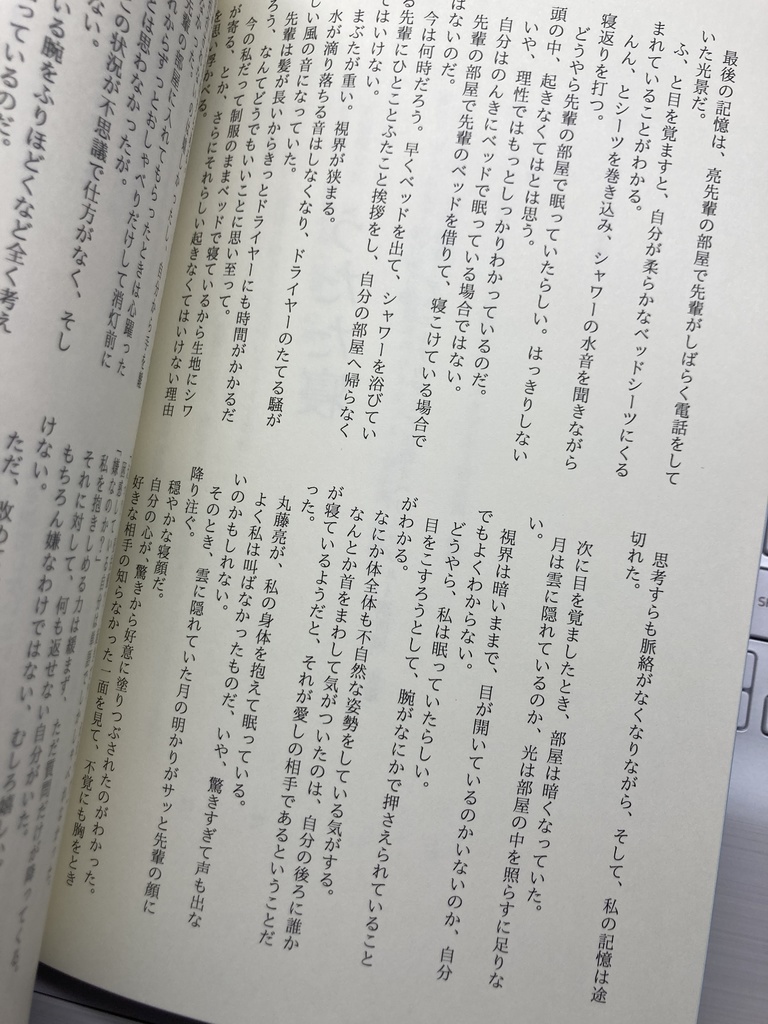 最後の記憶は、亮先輩の部屋で先輩がしばらく電話をして
いた光景だ。
ふ、と目を覚ますと、自分が柔らかなベッドシーツにくる
まれていることがわかる。
んん、とシーツを巻き込み、シャワーの水音を聞きながら
寝返りを打つ。
どうやら先輩の部屋で眠っていたらしい。はっきりしない
頭の中、起きなくてはとは思う。
いや、理性ではもっとしっかりわかっているのだ。
自分はのんきにベッドで眠っている場合ではない。
先輩の部屋で先輩のベッドを借りて、寝こけている場合で
はないのだ。
今は何時だろう。早くベッドを出て、シャワーを浴びてい
る先輩にひとことふたこと挨拶をし、自分の部屋へ帰らなく
てはいけない。
まぶたが重い。視界が狭まる。
水が滴り落ちる音はしなくなり、ドライヤーのたてる騒が
しい風の音になっていた。
先輩は髪が長いからきっとドライヤーにも時間がかかるだ
ろう、なんてどうでもいいことに思い至って。
今の私だって制服のままベッドで寝ているから生地にシワ
が寄る、とか、さらにそれらしい起きなくてはいけない理由
を思い浮かべる。
思考すらも脈絡がなくなりながら、そして、私の記憶は途
切れた。
次に目を覚ましたとき、部屋は暗くなっていた。
月は雲に隠れているのか、光は部屋の中を照らすに足りな
い。
視界は暗いままで、目が開いているのかいないのか、自分
でもよくわからない。
どうやら、私は眠っていたらしい。
目をこすろうとして、腕がなにかで押さえられていること
がわかる。
なにか体全体も不自然な姿勢をしている気がする。
なんとか首をまわして気がついたのは、自分の後ろに誰か
が寝ているようだと、それが愛しの相手であるということだ
った。
丸藤亮が、私の身体を抱えて眠っている。
よく私は叫ばなかったものだ、いや、驚きすぎて声も出な
いのかもしれない。
そのとき、雲に隠れていた月の明かりがサッと先輩の顔に
降り注ぐ。
穏やかな寝顔だ。
自分の心が、驚きから好意に塗りつぶされたのがわかった。
好きな相手の知らなかった一面を見て、不覚にも胸をとき
先輩の部屋に入れてもらったときは心躍った
れからずっとおしゃべりだけして消灯前に
とは思わなかったが。
この状況が不思議で仕方がなく、そし
ない。
いる腕をふりほどくなど全く考え
っているのだ。
「嫌なのか？」
私を抱きしめる力は緩まず、ただ質問だけが降ってくる。
それに対して、何も返せない自分がいた。
もちろん嫌なわけではない、むしろ嬉しい。
けない。
ただ、改めて